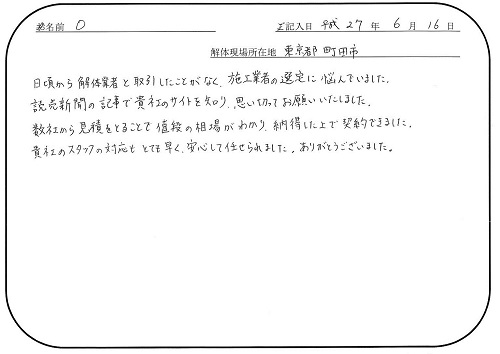 お名前 O
ご記入日 平成 27 年 6 月 16 日
解体現場所在地 東京都 町田市
日頃から解体業者と取引したことがなく、施工業者の選定に悩んでいました。
読売新聞の記事で貴社のサイトを知り、思い切ってお願いいたしました。
数社から見積をとることで値段の相場がわかり、納得した上で契約できました。
貴社のスタッフの対応もとても早く、安心して任せられました。ありがとうございました。